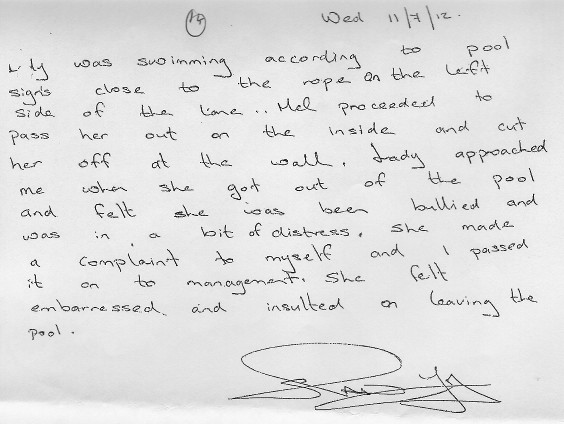 14 Wed 11/7/12.
Lady was swimming according to pool
signs close to the rope on the left
side of the lane .. Mel proceeded to
pass her out on the inside and cut
her off at the wall. Lady approached
me when she got out of the pool
and felt she was been bullied and
was in a bit of distress. She made
a complaint to myself and I passed
it on to management. She felt
embarressed and insulted on leaving the
pool.